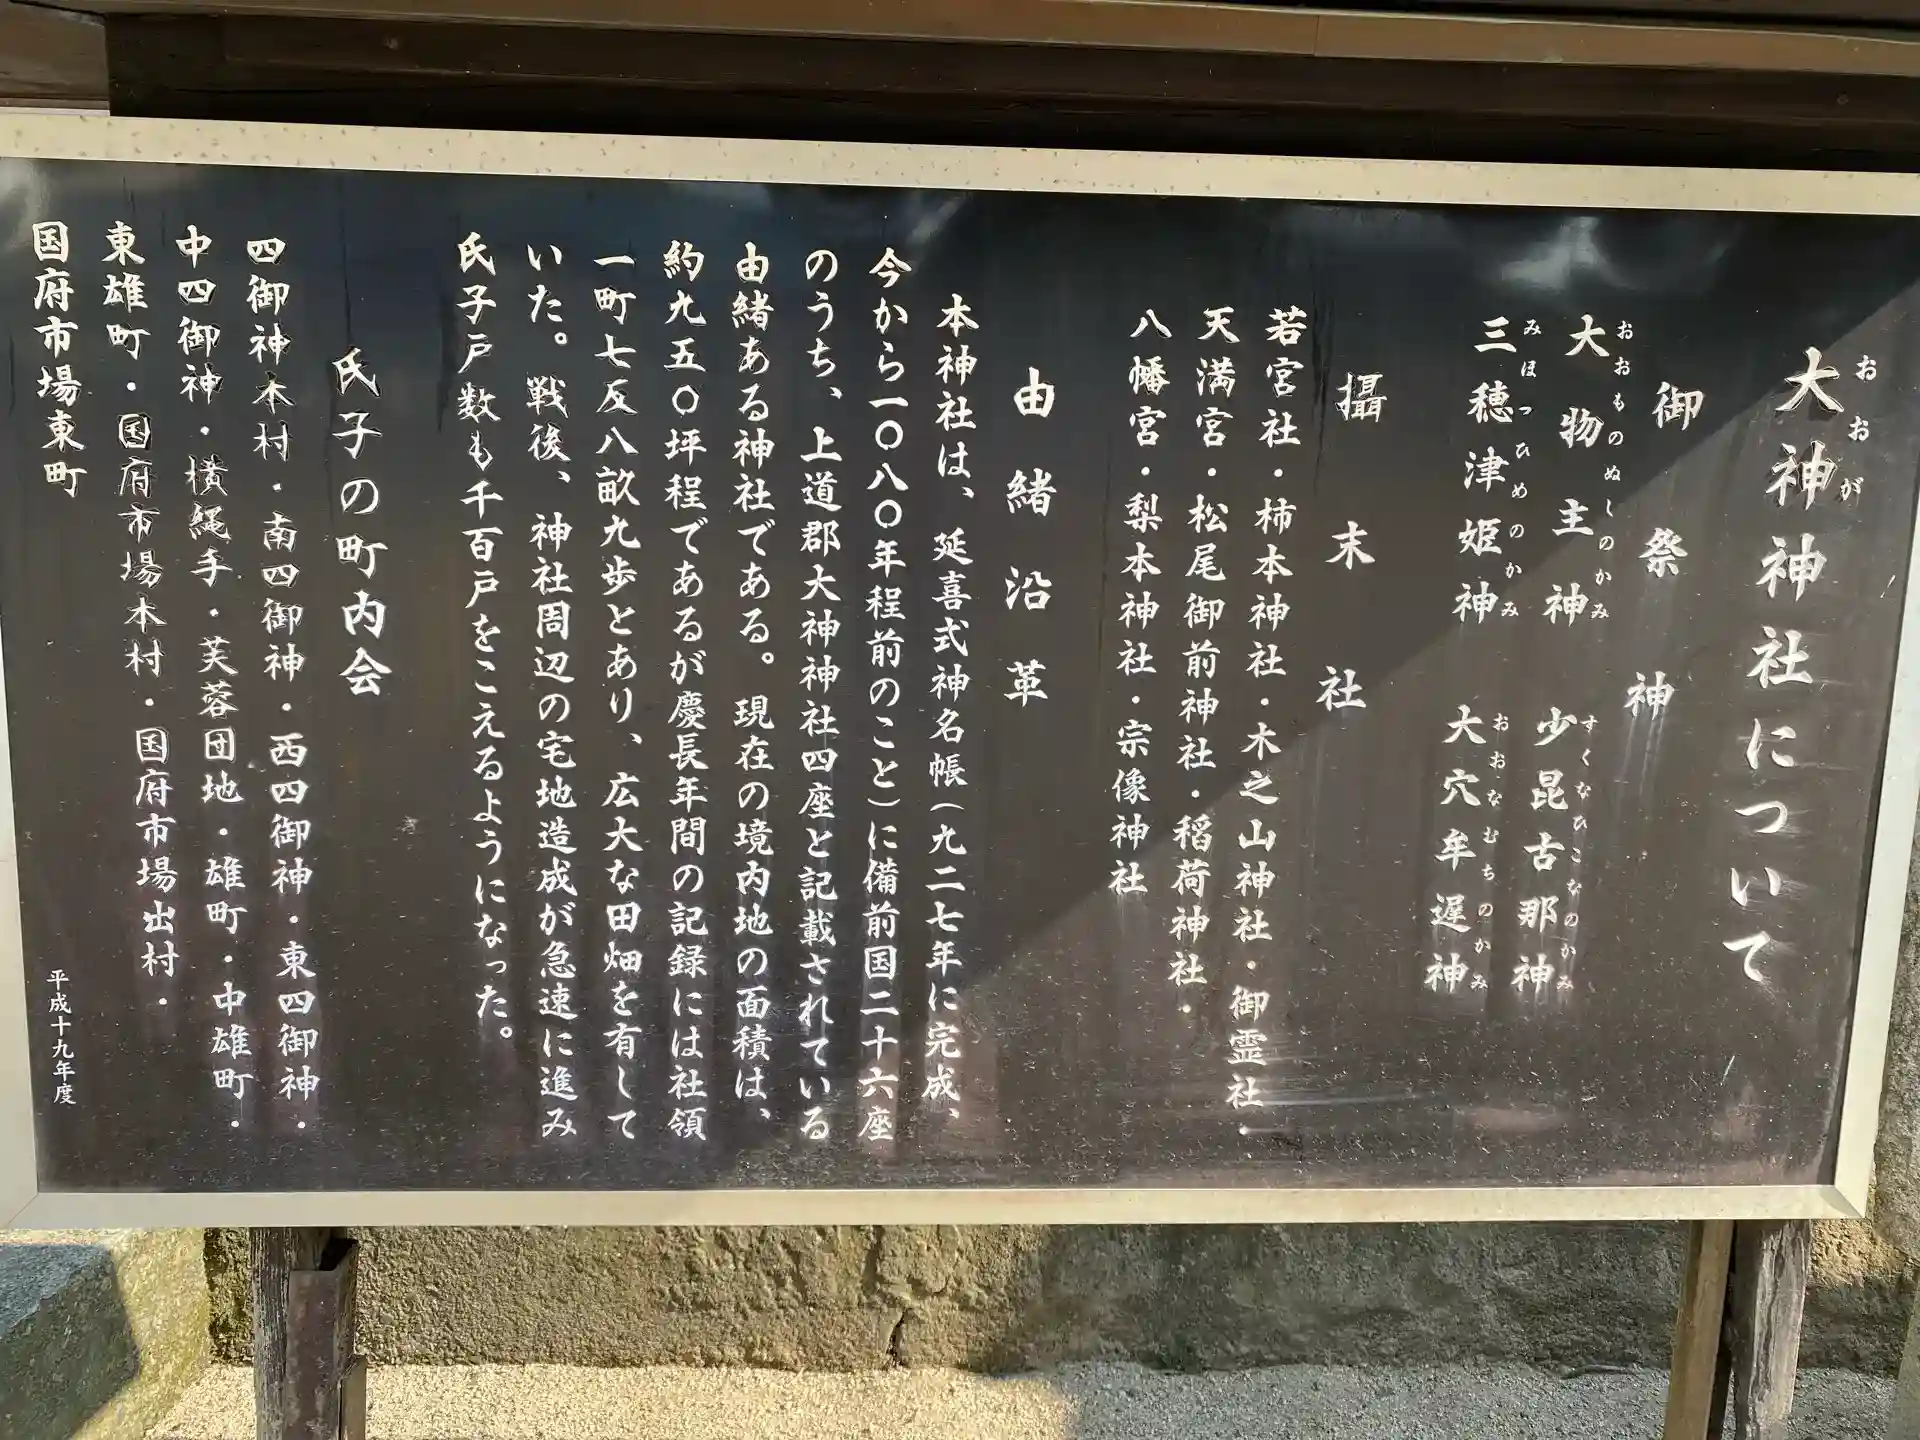 大神神社について
おおが
御祭神
大物主神 少昆古那神
おおものぬしのかみ すくなひこなのかみ
三穂津姫神 大穴牟遅神
みほつひめのかみ おおなむちのかみ
攝末社
若宮社・柿本神社・木之山神社・御霊社・
天満宮・松尾御前神社・稲荷神社・
八幡宮・梨本神社・宗像神社
由緒沿革
本神社は、延喜式神名帳(九二七年に完成、
今から一〇八〇年程前のこと)に備前国二十六座
のうち、上道郡大神神社四座と記載されている
由緒ある神社である。現在の境内地の面積は、
約九五〇坪程であるが慶長年間の記録には社領
一町七反八畝九歩とあり、広大な田畑を有して
いた。戦後、神社周辺の宅地造成が急速に進み
氏子戸数も千百戸をこえるようになった。
氏子の町内会
四御神本村・南四御神・西四御神・東四御神・
中四御神・横縄手・芙蓉団地・雄町・中雄町・
東雄町・国府市場本村・国府市場出村・
国府市場東町
平成十九年度